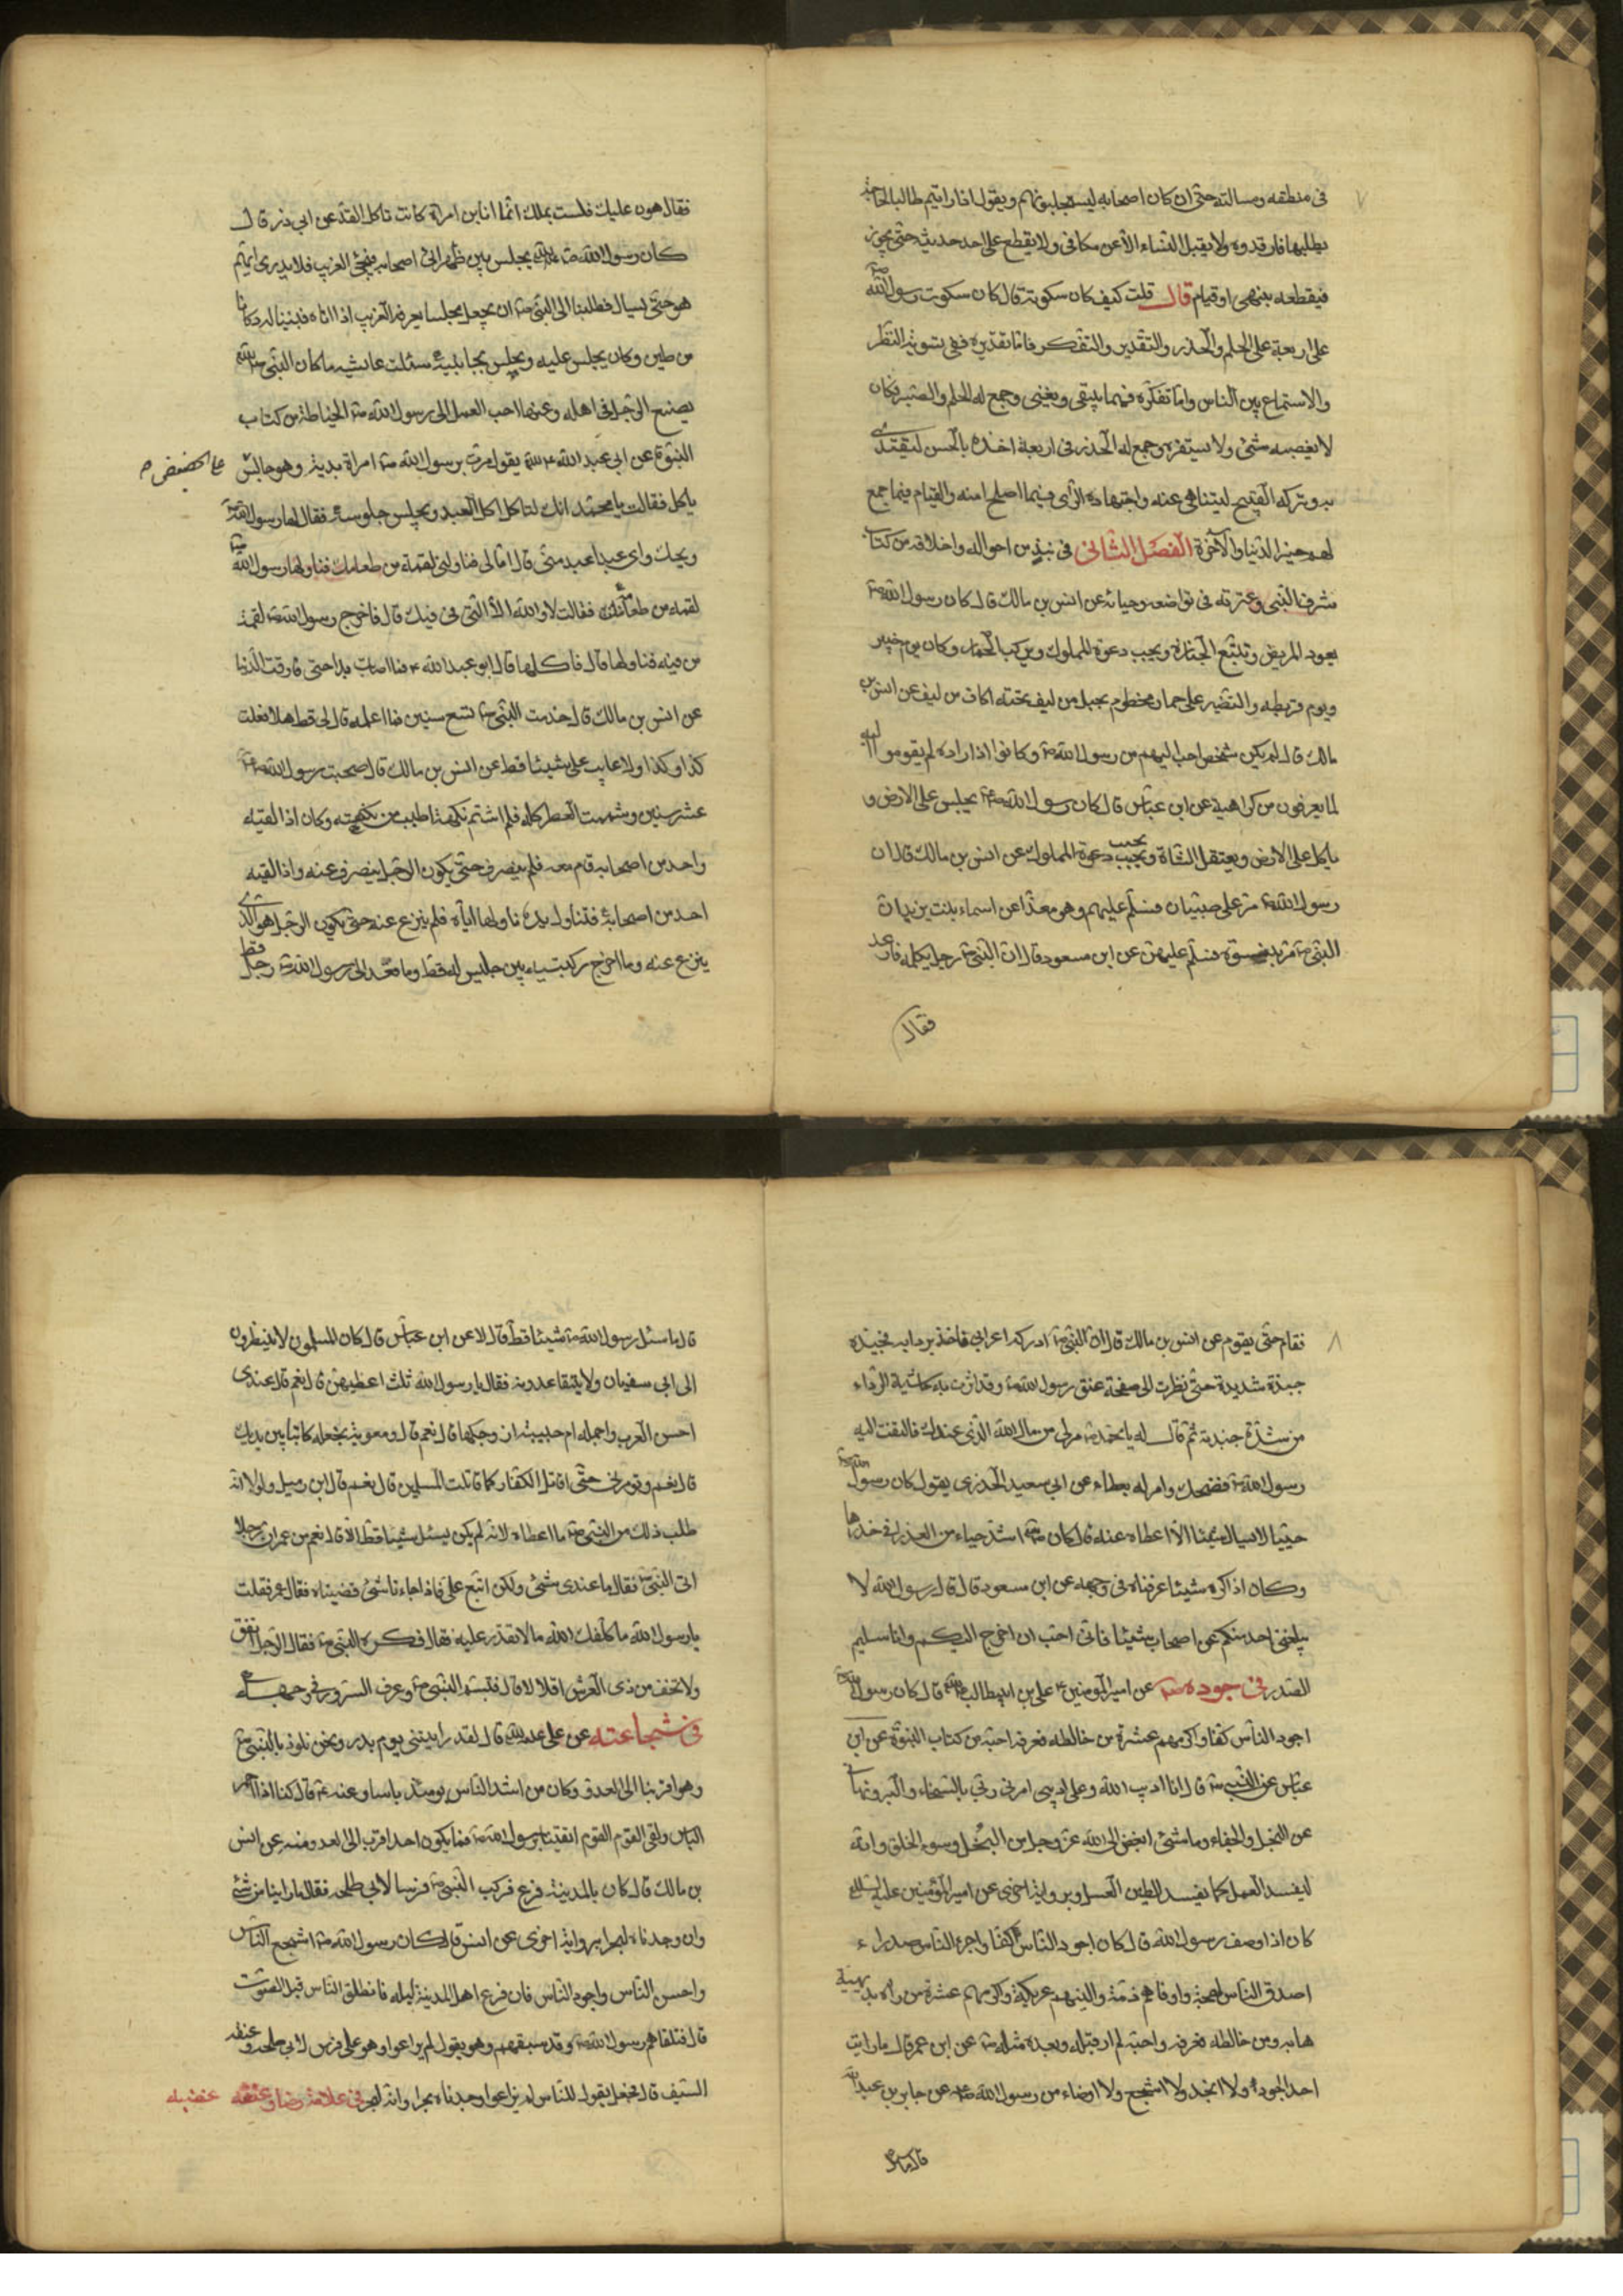 ٧
فى منطقه ومسالته حتى ان كان اصحابه ليستجلبونهم ويقول اذا رايتم طالب الحاجة
يطلبها فارفدوه ولا يقبل الثناء الا عن مكافئ ولا يقطع على احد حديثه حتى يجوز
فيقطعه بنهى او قيام قال قلت كيف كان سكوته قال كان سكوت رسول الله
على اربعة على الحلم والحذر والتقدير والتفكر فاما تقديره ففى تسوية النظر
والاستماع بين الناس واما تفكره فيما يبقى ويفنى وجمع له الحلم والصبر فكان
لا يغضبه شئ ولا يستفزه وجمع له الحذر فى اربعة اخذه بالحسن ليقتدى
به وتركه القبيح ليتناهى عنه واجتهاده الراى فيما اصلح امته والقيام فيما جمع
لهم خير الدنيا والآخرة الفصل الثانى فى نبذ من احواله واخلاقه من كتاب
شرف النبى وعترته فى تواضعه وحيائه عن انس بن مالك قال كان رسول الله
يعود المريض ويتبع الجنازة ويجيب دعوة المملوك ويركب الحمار وكان يوم خيبر
ويوم قريظه والنضير على حمار مخطوم بحبل من ليف تحته اكاف من ليف عن انس بن
مالك قال لم يكن شخص احب اليهم من رسول الله وكانوا اذا راوه لم يقوموا اليه
لما يعرفون من كراهيته عن ابن عباس قال كان رسول الله يجلس على الارض و
ياكل على الارض ويعتقل الشاة ويجيب دعوة المملوك عن انس بن مالك قال ان
رسول الله مر على صبيان فسلم عليهم وهو مغذ عن اسماء بنت يزيد ان
النبى مر بنسوة فسلم عليهن عن ابن مسعود قال ان النبى رجل يكلمه فارعد
فقال
فقال هون عليك فلست بملك انما انا ابن امراة كانت تاكل القد عن ابى ذر قال
كان رسول الله يجلس بين ظهرانى اصحابه فيجئ الغريب فلا يدرى ايهم
هو حتى يسال فطلبنا الى النبى ان يجعل مجلسا يعرفه الغريب اذا اتاه فبنينا له دكانا
من طين وكان يجلس عليه ويجلس بجانبيه سئلت عائشه ما كان النبى
يصنع الرجل فى اهله وعنها احب العمل الى رسول الله الخياطة من كتاب
النبوة عن ابى عبد الله يقول مرت برسول الله امراة بذية وهو جالس على الحضيض
ياكل فقالت يا محمد انك لتاكل اكل العبد وتجلس جلوسه فقال لها رسول الله
ويحك واى عبد اعبد منى قال امالى فناولنى لقمة من طعامك فناولها رسول الله
لقمه من طعامه فقالت لا والله الا التى فى فيك قال فاخرج رسول الله لقمة
من فيه فناولها قال فاكلها قال ابو عبد الله فما اصابت بداء حتى فارقت الدنيا
عن انس بن مالك قال خدمت النبى تسع سنين فما اعلمه قال لى قط هلا فعلت
كذا وكذا ولا عاب على شيئا قط عن انس بن مالك قال صحبت رسول الله
عشر سنين وشممت العطر كله فلم اشتم نكهة اطيب من نكهته وكان اذا لقيه
واحد من اصحابه قام معه فلم ينصرف حتى يكون الرجل ينصرف عنه واذا لقيه
احد من اصحابه فتناول يده ناولها اياه فلم ينزع عنه حتى يكون الرجل هو الذى
ينزع عنه وما اخرج ركبتيه بين جليس له قط وما قعد الى رسول الله رجل قط
٨
فقام حتى يقوم عن انس بن مالك قال ان النبى ادركه اعرابى فاخذ بردايه فجبذه
جبذة شديدة حتى نظرت الى صفحة عنق رسول الله وقد اثرت به حاشية الرداء
من شدة جبذته ثم قال له يا محمد مر لى من مال الله الذى عندك فالتفت اليه
رسول الله فضحك وامر له بعطاء عن ابى سعيد الخدرى يقول كان رسول الله
حييا لا يسال شيئا الا اعطاه عنه قال كان اشد حياء من العذراء فى خدرها
وكان اذا كره شيئا عرفناه فى وجهه عن ابن مسعود قال قال رسول الله لا
يبلغنى احد منكم عن اصحابى شيئا فانى احب ان اخرج اليكم وانا سليم
الصدر فى جوده عن امير المؤمنين على بن ابيطالب قال كان رسول الله
اجود الناس كفا واكرمهم عشرة من خالطه فعرفه احبه من كتاب النبوة عن ابن
عباس عن النبى قال انا اديب الله وعلى اديبى امرنى ربى بالسخاء والبر ونهانى
عن البخل والجفاء وما شئ ابغض الى الله عز وجل من البخل وسوء الخلق وانه
ليفسد العمل كما يفسد الطين العسل وبرواية اخرى عن امير المؤمنين عليه السلام
كان اذا وصف رسول الله قال كان اجود الناس كفا واجرء الناس صدرا و
اصدق الناس لهجة واوفاهم ذمة والينهم عريكة واكرمهم عشرة من راه بديهة
هابه ومن خالطه فعرفه واحبه لم ار قبله وبعده مثله عن ابن عمر قال ما رايت
احدا اجود ولا انجد ولا اشجع ولا اوضاء من رسول الله عن جابر بن عبد الله
قال ما سئل
قال ما سئل رسول الله شيئا قط قال لا عن ابن عباس قال كان المسلمون لا ينظرون
الى ابى سفيان ولا يتقاعدونه فقال يا رسول الله ثلث اعطيهن قال نعم قال عندى
احسن العرب واجمله ام حبيبة ازوجكها قال نعم قال ومعوية تجعله كاتبا بين يديك
قال نعم وتومرنى حتى اقاتل الكفار كما قاتلت المسلمين قال نعم قال ابن زميل ولولا انه
طلب ذلك من النبى ما اعطاه لانه لم يكن يسئل شيئا قط الا قال نعم عن عمر ان رجلا
اتى النبى فقال ما عندى شئ ولكن اتبع على فاذا جاءنا شئ قضيناه فقال عمر فقلت
يا رسول الله ما كلفك الله ما لا تقدر عليه قال فكره النبى فقال الرجل انفق
ولا تخف من ذى العرش اقلالا قال فتبسم النبى وعرف السرور فى وجهه
فى شجاعته عن على قال لقد رايتنى يوم بدر ونحن نلوذ بالنبى
وهو اقربنا الى العدو وكان من اشد الناس يومئذ باسا وعنه قال كنا اذا احمر
الباس ولقى القوم القوم اتقينا برسول الله فما يكون احد اقرب الى العدو منه عن انس
بن مالك قال كان بالمدينة فزع فركب النبى فرسا لابى طلحه فقال ما راينا من شئ
وان وجدناه لبحرا برواية اخرى عن انس قال كان رسول الله اشجع الناس
واحسن الناس واجود الناس قال فزع اهل المدينة ليله فانطلق الناس قبل الصوت
قال فتلقاهم رسول الله وقد سبقهم وهو يقول لم تراعوا وهو على فرس لابى طلحه وفى عنقه
السيف قال فجعل يقول للناس لم تراعوا وجدناه بحرا وانه لبحر فى علامة رضاه وغضبه